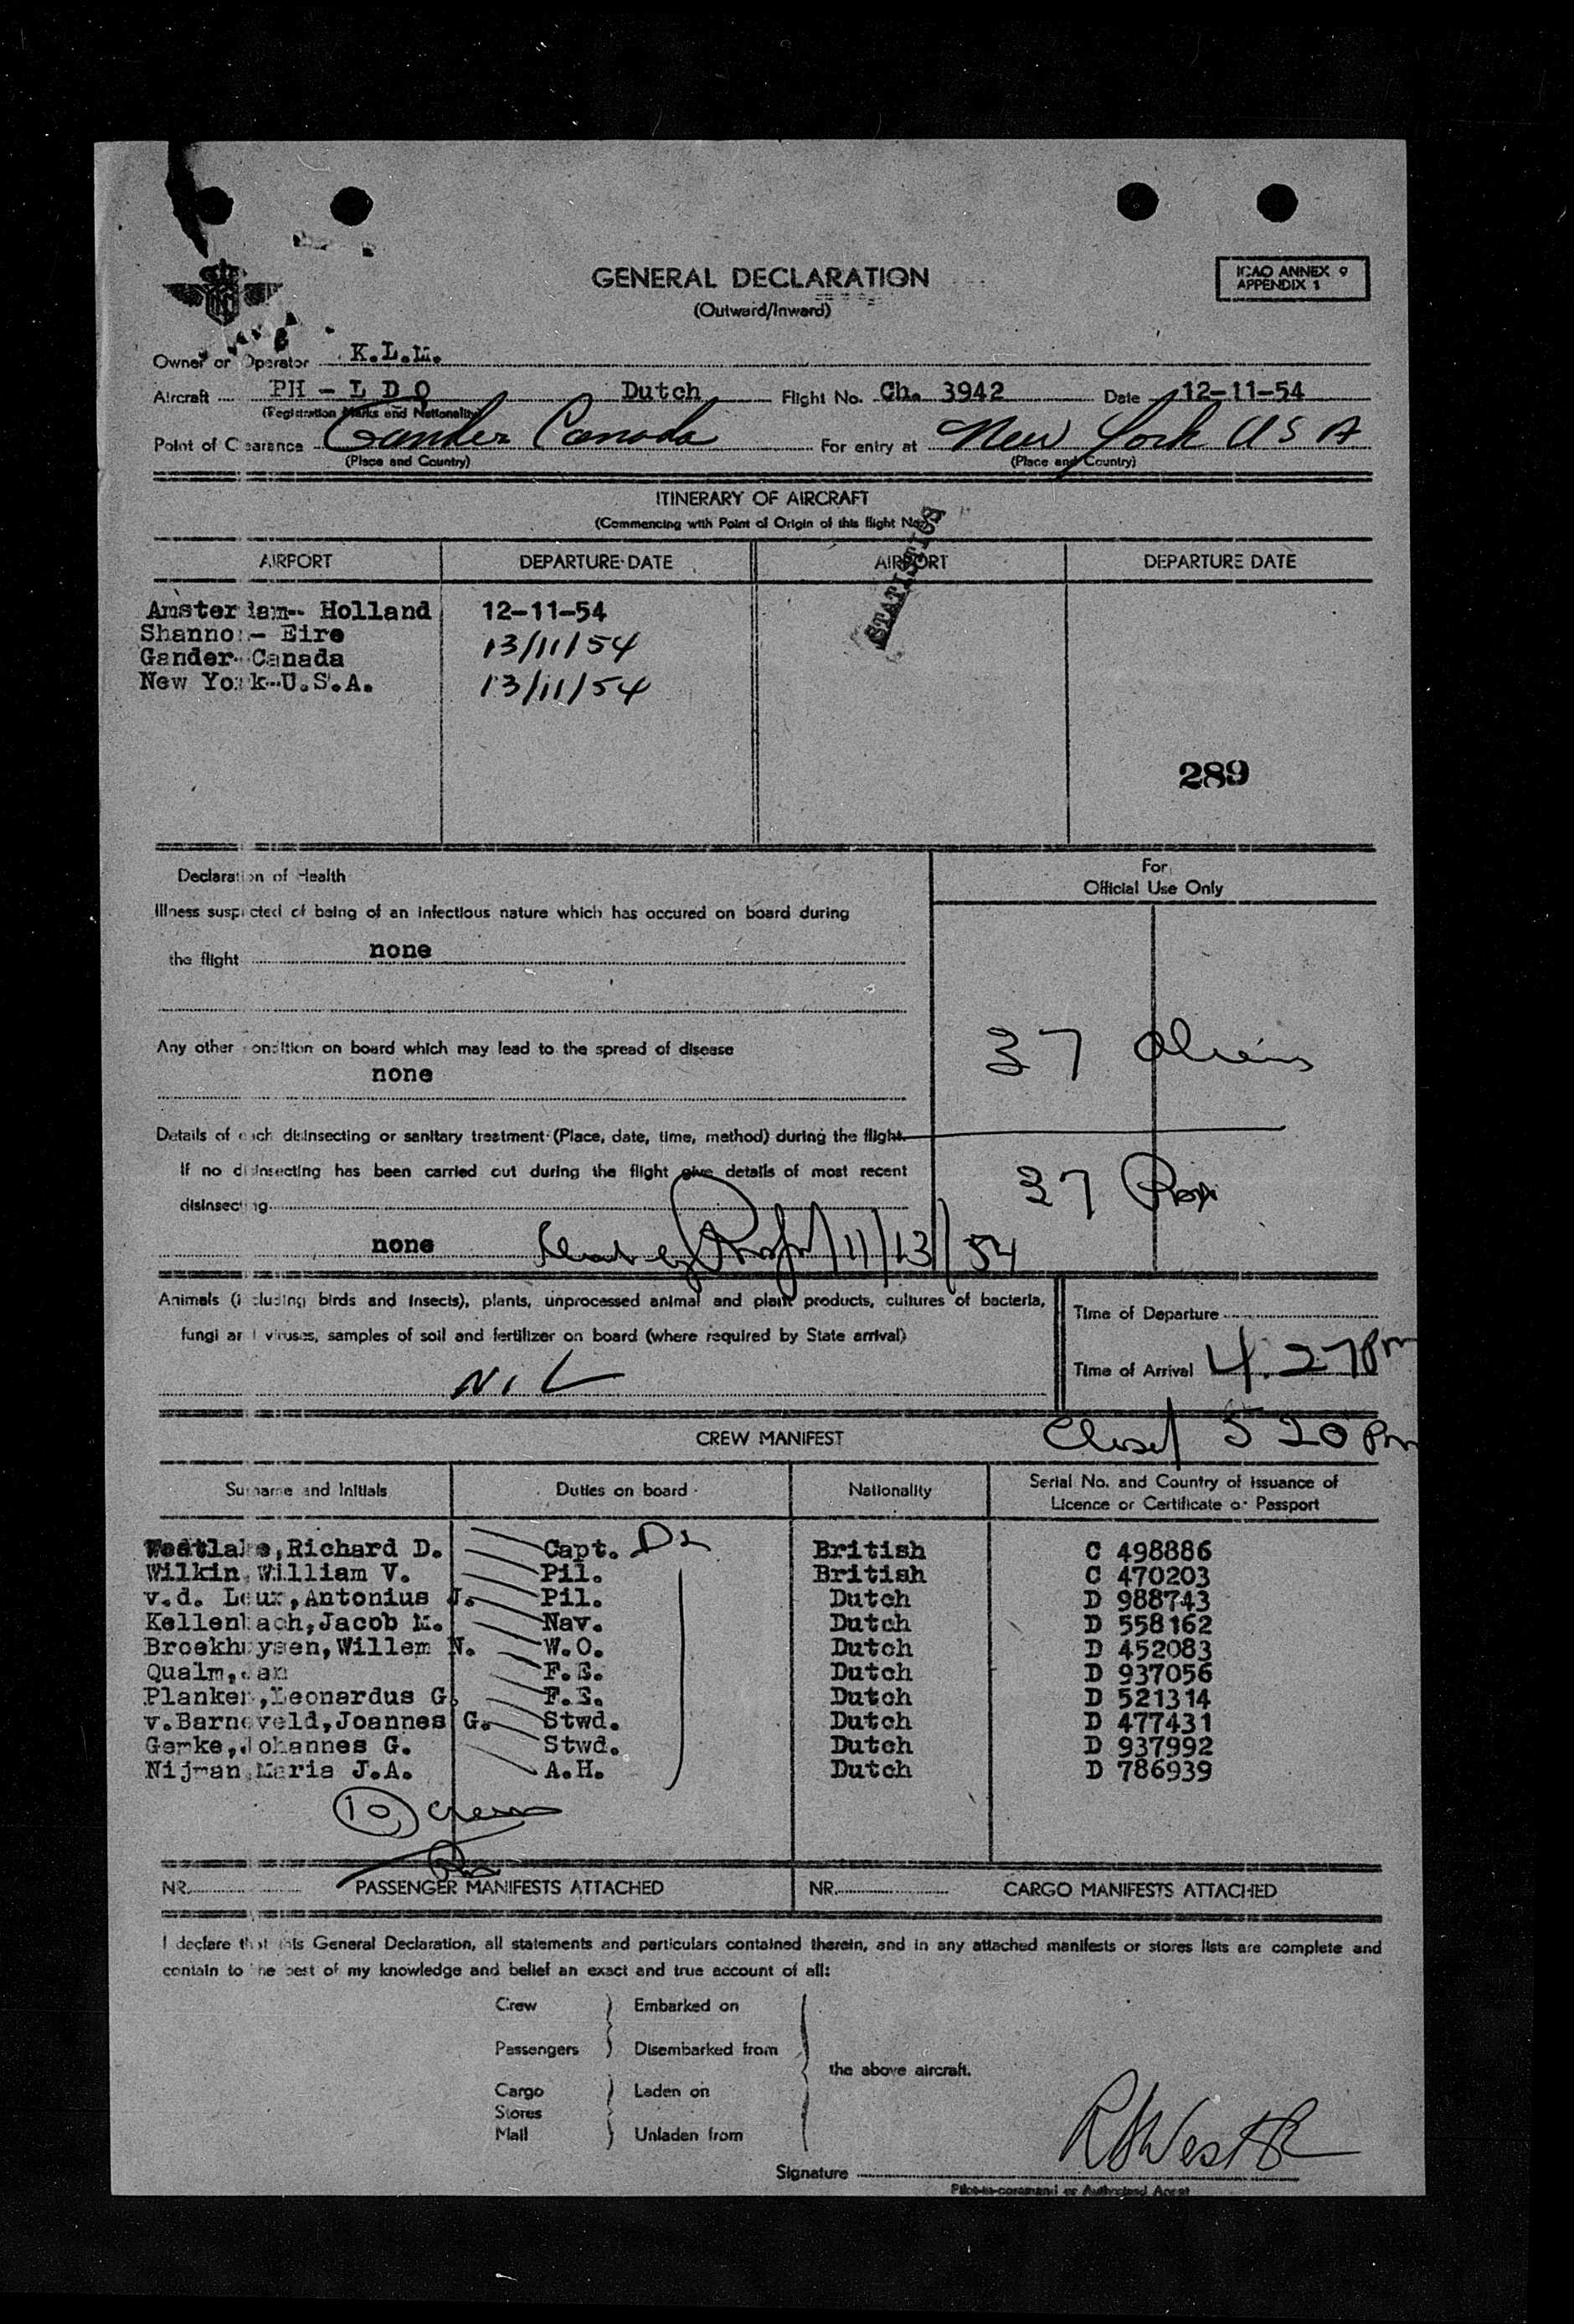 GENERAL DECLARATION
(Outward/Inward)
ICAO ANNEX 9
APPENDIX 1
Owner or Operator K.L.M.
Aircraft PH - L D O Dutch Flight No. Ch. 3942 Date 12-11-54
(Registration Marks and Nationality)
Point of Clearance Gander Canada For entry at New York U S A
(Place and Country) (Place and Country)
ITINERARY OF AIRCRAFT
(Commencing with Point of Origin of this flight No.)
STATISTICS
AIRPORT DEPARTURE DATE AIRPORT DEPARTURE DATE
Amsterdam-- Holland 12-11-54
Shannon- Eire 13/11/54
Gander- Canada
New York--U.S.A. 13/11/54
289
Declaration of Health
For
Official Use Only
Illness suspected of being of an infectious nature which has occured on board during
the flight none
Any other condition on board which may lead to the spread of disease
none
37 Aliens
Details of each disinsecting or sanitary treatment (Place, date, time, method) during the flight.
If no disinsecting has been carried out during the flight give details of most recent
disinsecting
37 Pax
none 11/13/54
Animals (including birds and insects), plants, unprocessed animal and plant products, cultures of bacteria,
fungi and viruses, samples of soil and fertilizer on board (where required by State arrival)
NIL
Time of Departure
Time of Arrival 4.27 Pm
Closed 5 20 Pm
CREW MANIFEST
Surname and Initials Duties on board Nationality Serial No. and Country of issuance of
Licence or Certificate or Passport
Westlake, Richard D. Capt. British C 498886
Wilkin, William V. Pil. British C 470203
v.d. Leur, Antonius J. Pil. Dutch D 988743
Kellenbach, Jacob M. Nav. Dutch D 558162
Broekhuysen, Willem N. W.O. Dutch D 452083
Qualm, Jan F.E. Dutch D 937056
Planken, Leonardus G. F.E. Dutch D 521314
v.Barneveld, Joannes G. Stwd. Dutch D 477431
Gemke, Johannes G. Stwd. Dutch D 937992
Nijman, Maria J.A. A.H. Dutch D 786939
10 Crew
NR. PASSENGER MANIFESTS ATTACHED NR. CARGO MANIFESTS ATTACHED
I declare that this General Declaration, all statements and particulars contained therein, and in any attached manifests or stores lists are complete and
contain to the best of my knowledge and belief an exact and true account of all:
Crew } Embarked on
Passengers } Disembarked from
the above aircraft.
Cargo } Laden on
Stores
Mail } Unladen from
Signature
Pilot-in-command or Authorized Agent